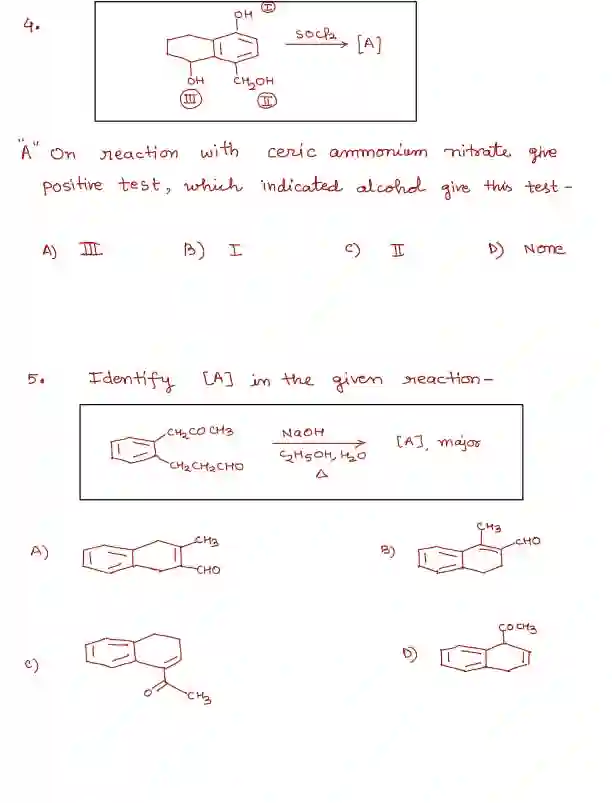 4.
OH I
SOCl2
[A]
OH CH2OH
III II
"A" On reaction with ceric ammonium nitrate give
positive test, which indicated alcohol give this test -
A) III B) I C) II D) None
5. Identify [A] in the given reaction-
CH2COCH3
NaOH
[A], major
C2H5OH, H2O
CH2CH2CHO
Δ
A)
CH3
CHO
B)
CH3
CHO
C)
O
CH3
D)
COCH3